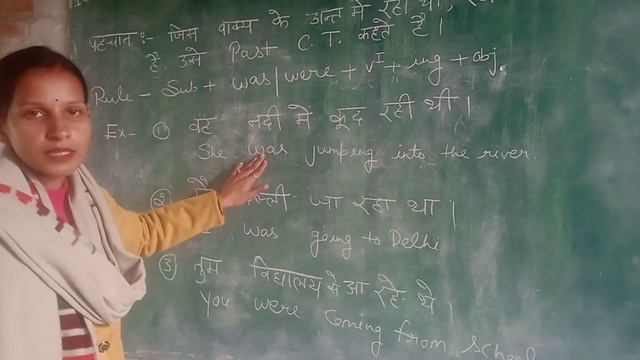 पहचान :- जिस वाक्य के अन्त में रहा था,
है, उसे Past C. T. कहते हैं।
Rule - Sub + was/were + v I + ing + obj.
Ex- ① वह नदी में कूद रही थी।
She was jumping into the river.
② जा रहा था।
was going to Delhi
③ तुम विद्यालय से आ रहे थे।
You were coming from school